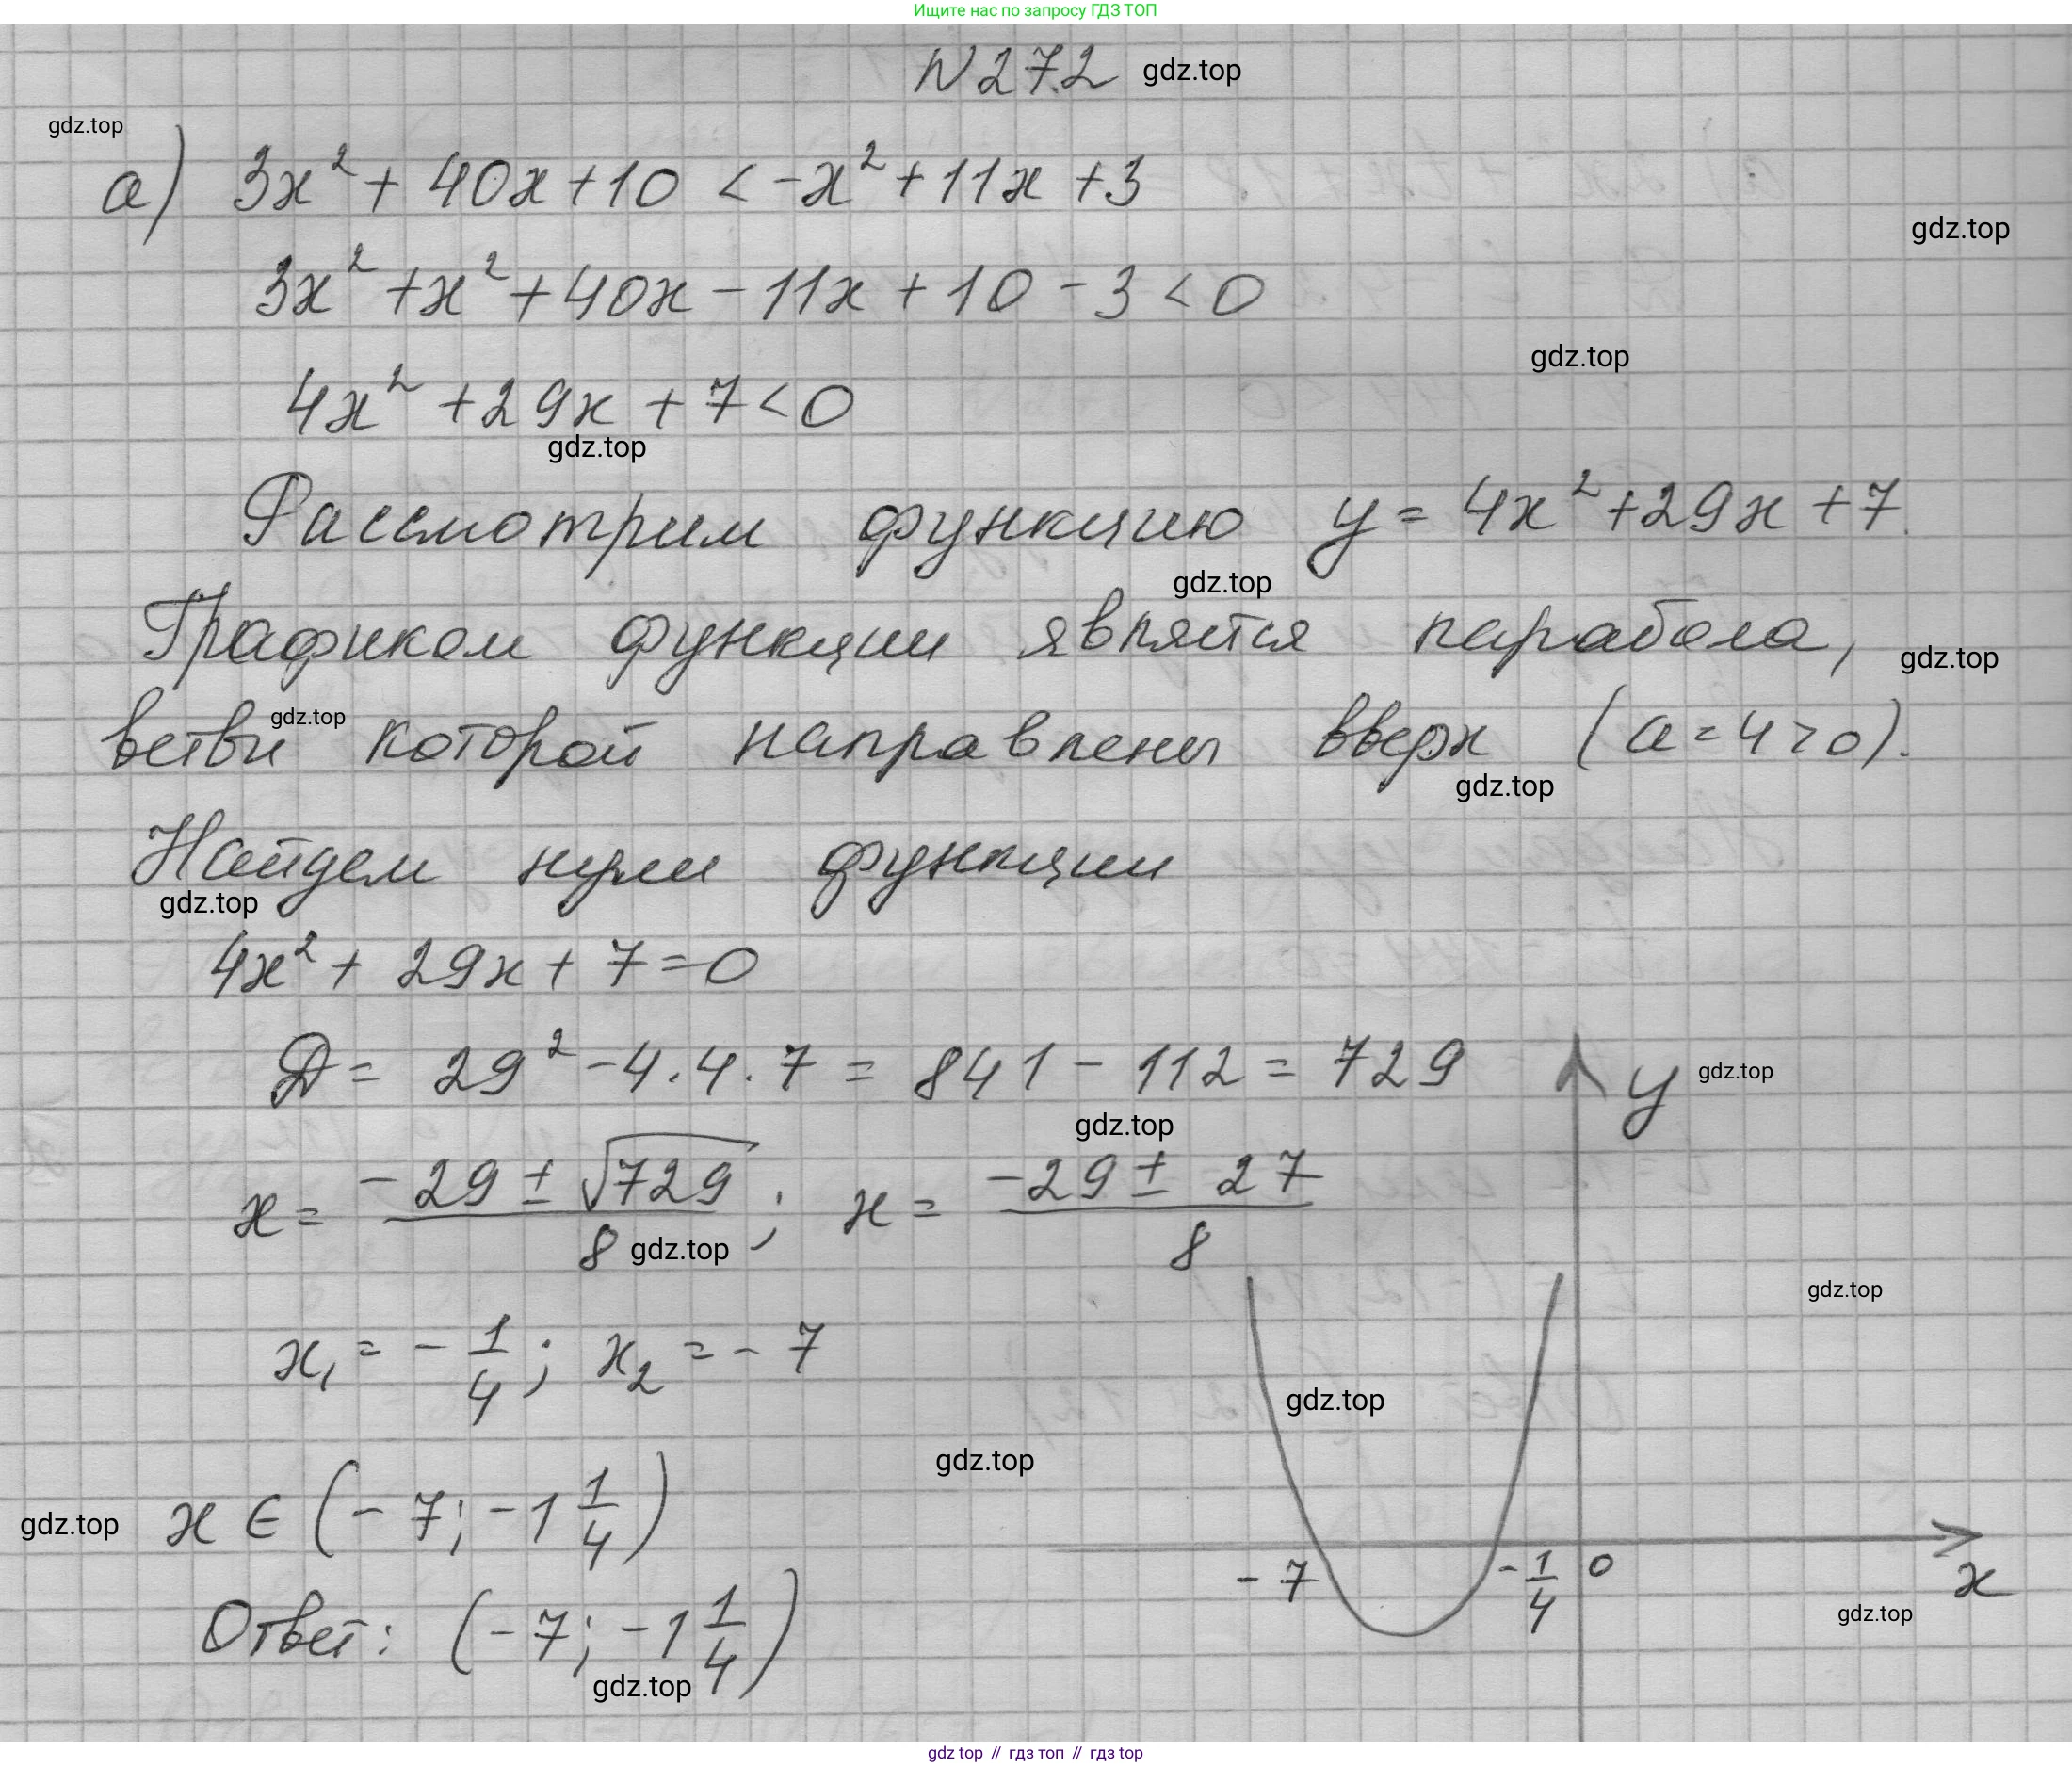 Ищите нас по запросу ГДЗ ТОП
N 272 gdz.top
gdz.top
а) 3x² + 40x + 10 < -x² + 11x + 3
gdz.top
3x² + x² + 40x - 11x + 10 - 3 < 0
gdz.top
4x² + 29x + 7 < 0
gdz.top
Рассмотрим функцию y = 4x² + 29x + 7.
gdz.top
Графиком функции является парабола,
gdz.top
ветви которой направлены вверх (a = 4 > 0).
gdz.top
gdz.top
Найдем нули функции
gdz.top
4x² + 29x + 7 = 0
D = 29² - 4 · 4 · 7 = 841 - 112 = 729
y gdz.top
gdz.top
x = (-29 ± √729)/8 ; x = (-29 ± 27)/8
gdz.top
gdz.top
x₁ = - 1/4 ; x₂ = - 7
gdz.top
gdz.top
gdz.top
x ∈ (- 7; -1 1/4)
- 7 - 1/4 0 x
gdz.top
Ответ: (- 7; -1 1/4)
gdz.top
gdz top // гдз топ // гдз top